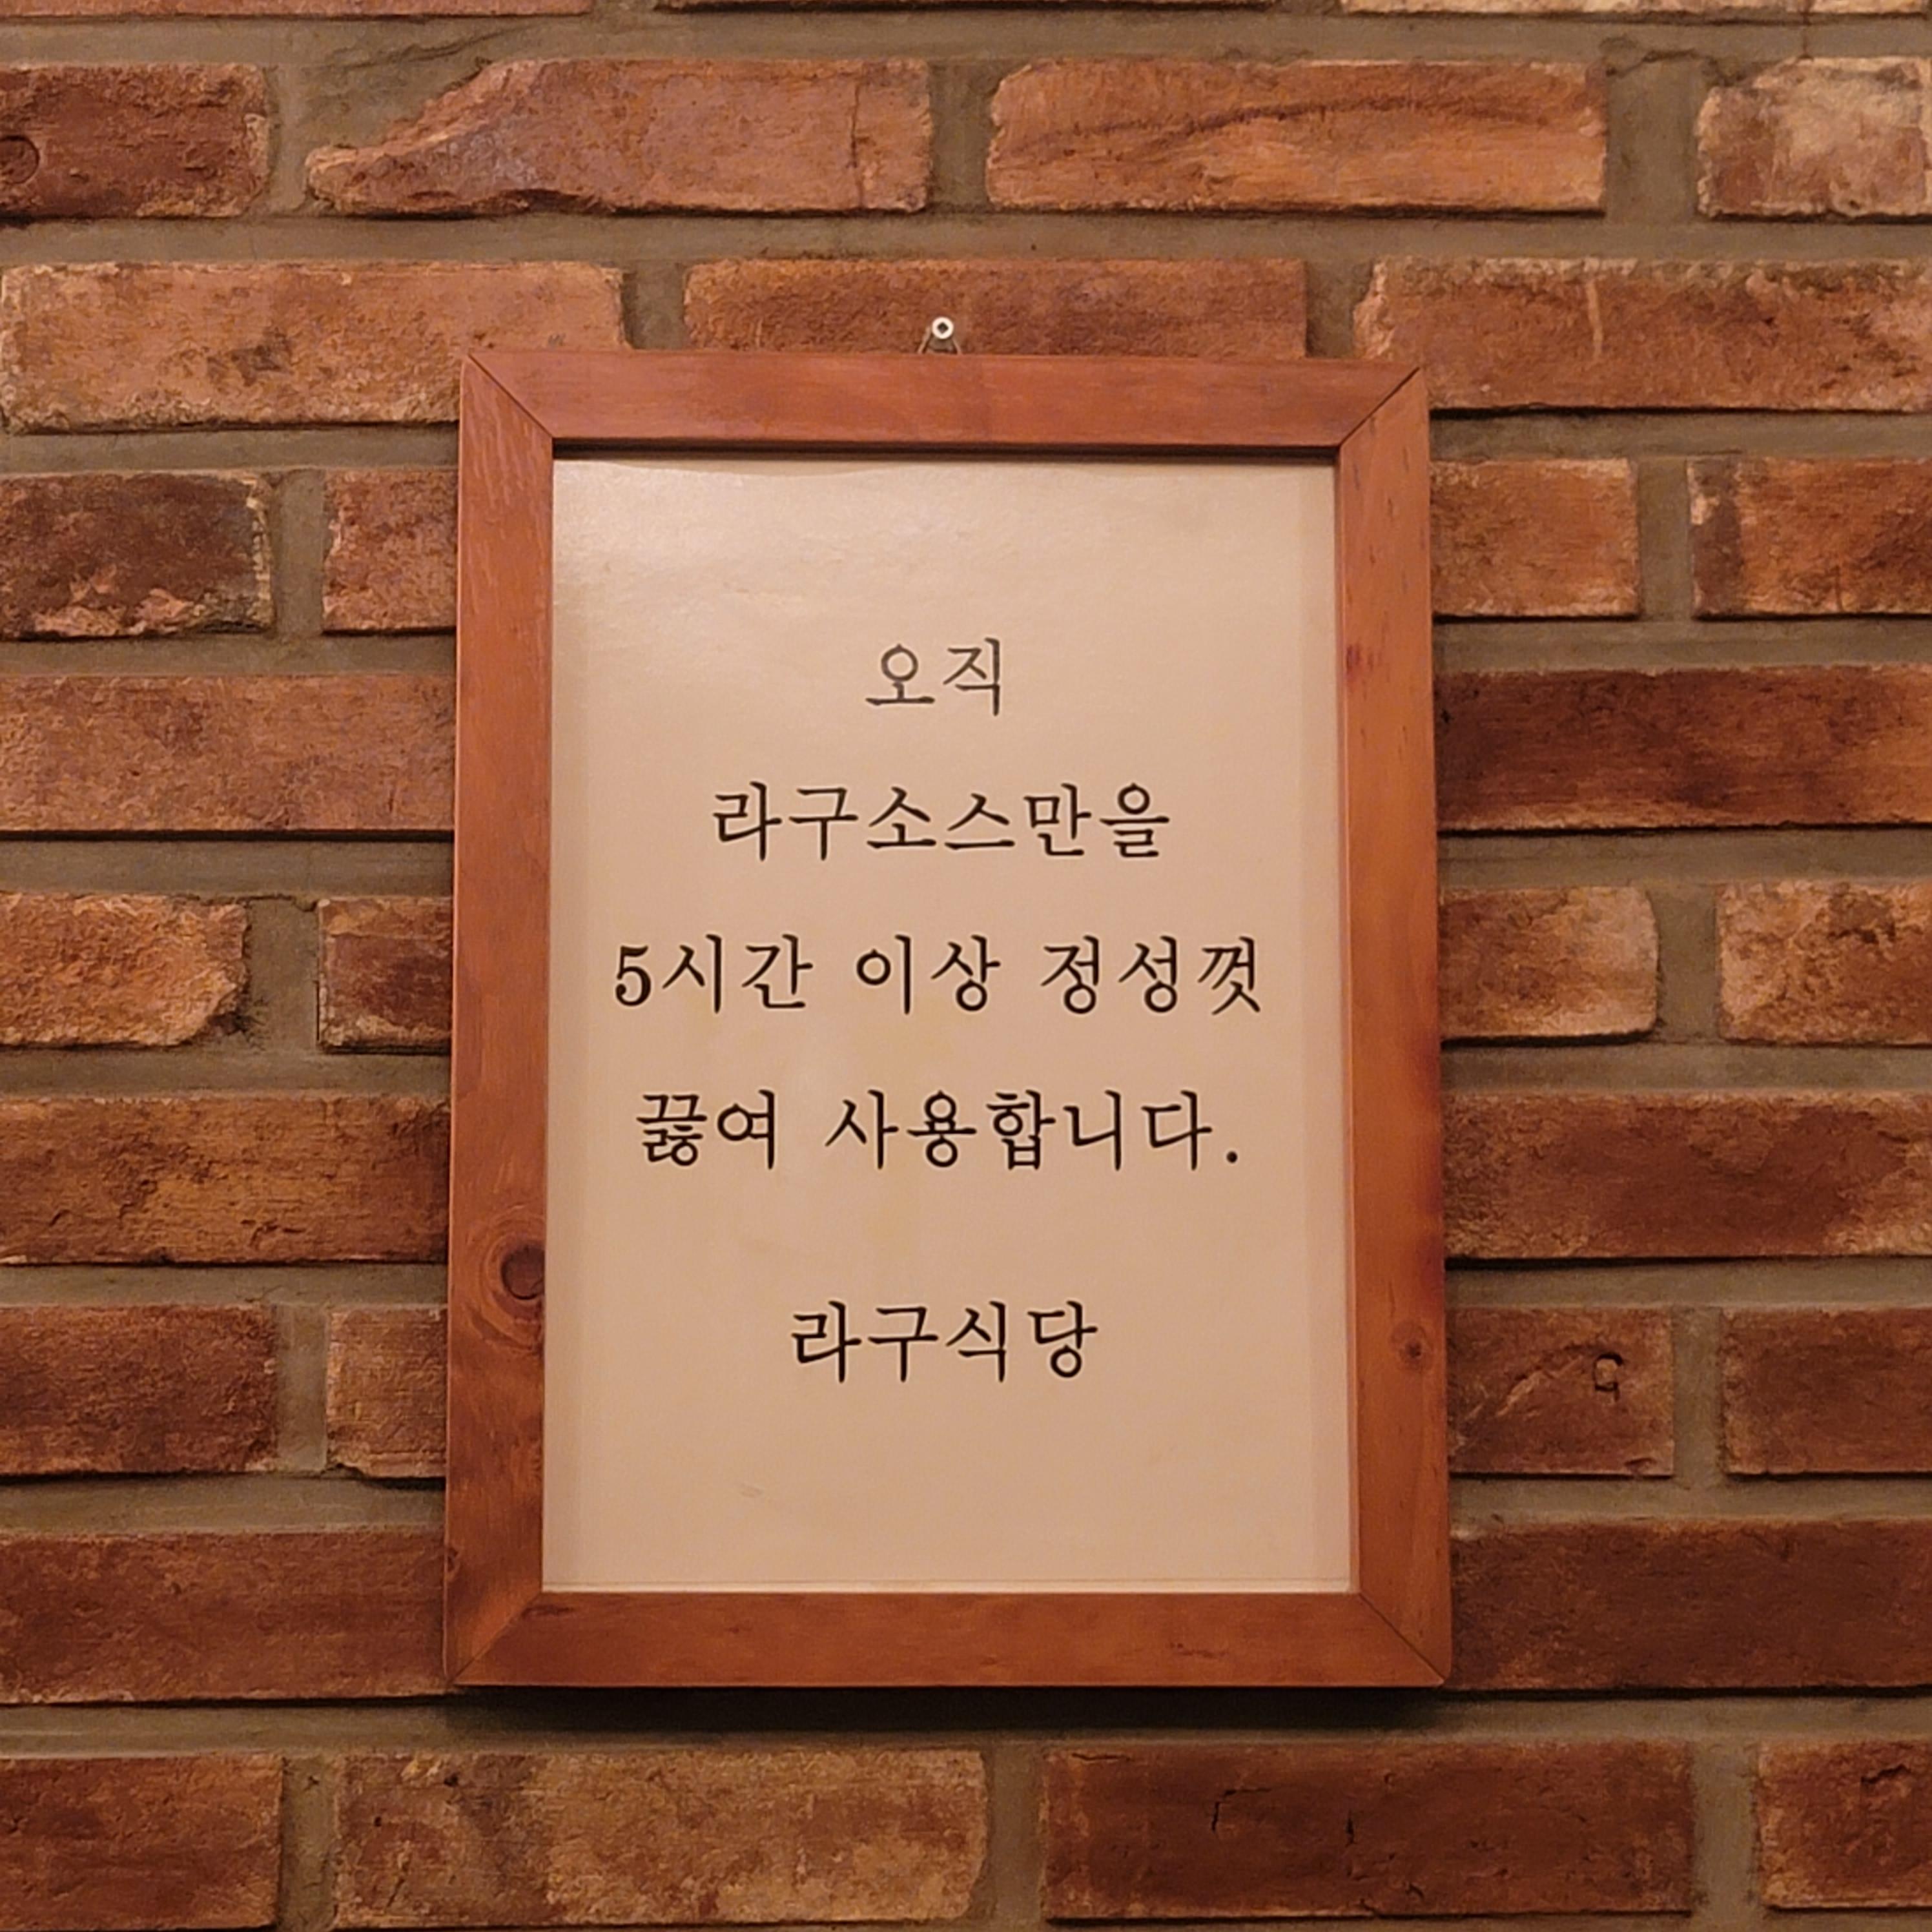 오직
라구소스만을
5시간 이상 정성껏
끓여 사용합니다.
라구식당